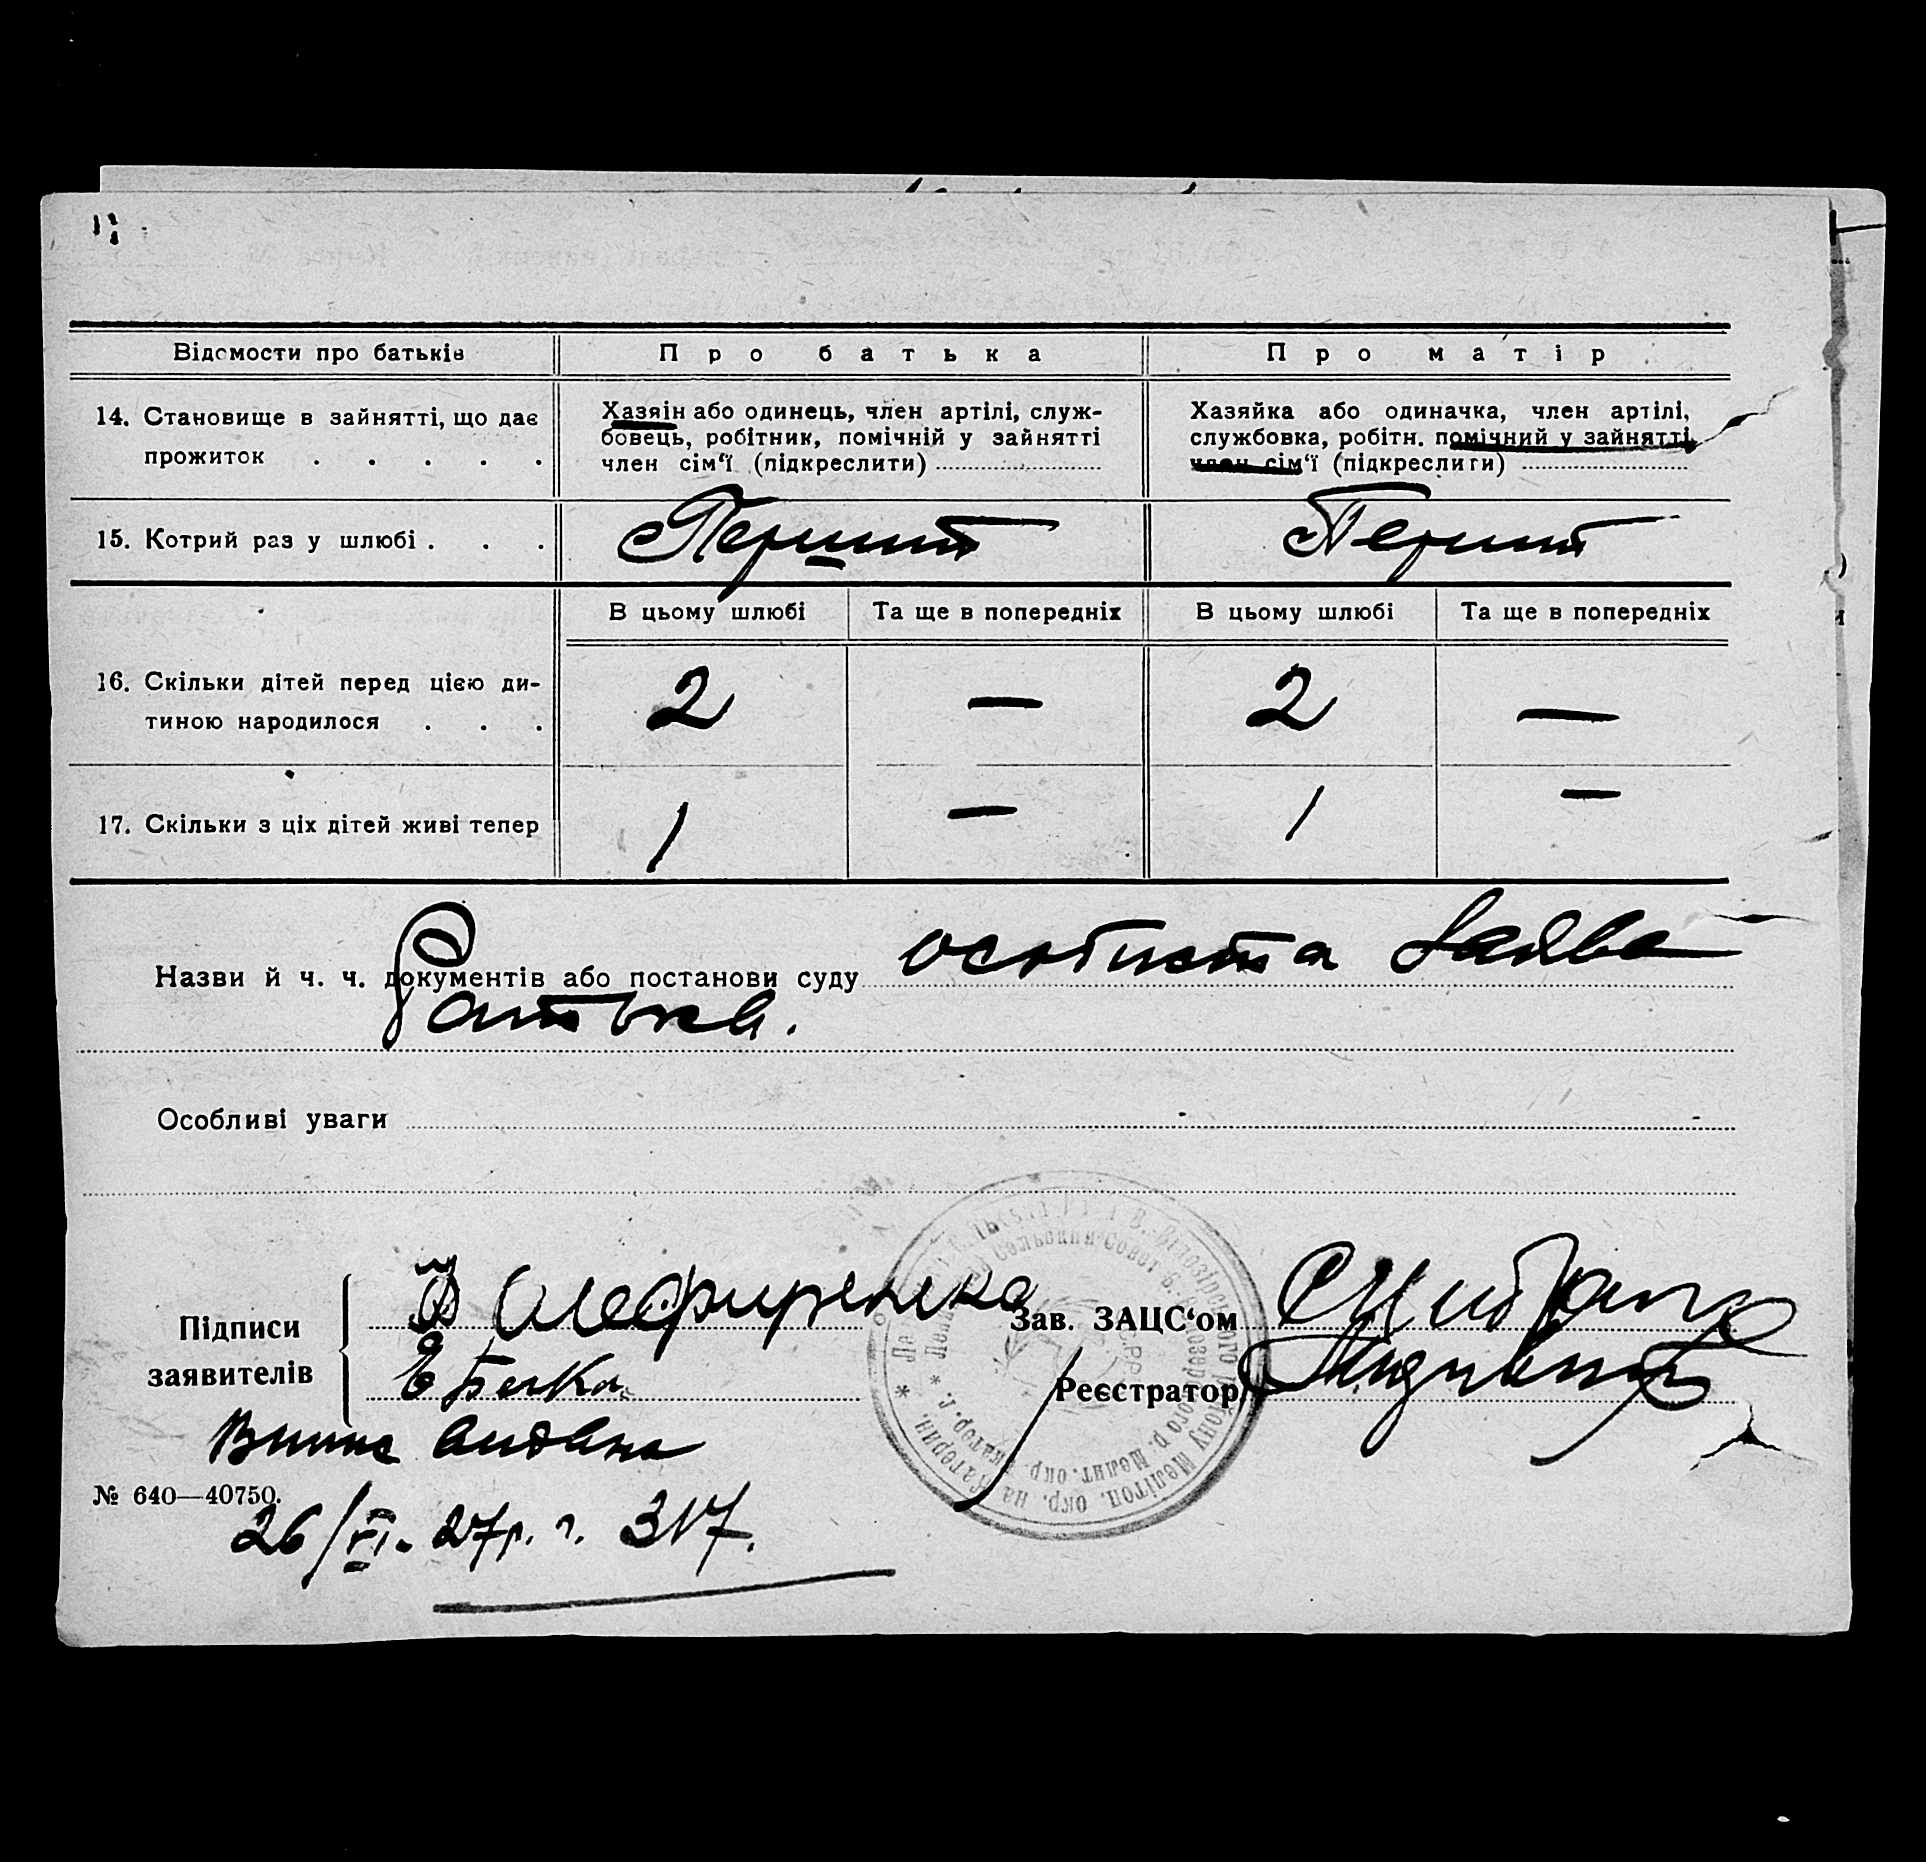 Відомости про батьків
Про батька
Про матір
14. Становище в зайнятті, що дає
прожиток . . . . .
Хазяін або одинець, член артілі, служ-
бовець, робітник, помічній у зайнятті
член сім‘ї (підкреслити)
Хазяйка або одиначка, член артілі,
службовка, робітн. помічний у зайнятті
член сім‘ї (підкреслити)
15. Котрий раз у шлюбі . . .
Перший
Перший
В цьому шлюбі
Та ще в попередніх
В цьому шлюбі
Та ще в попередніх
16. Скільки дітей перед цією ди-
тиною народилося . . .
2
—
2
—
17. Скільки з ціх дітей живі тепер
1
—
1
—
Назви й ч. ч. документів або постанови суду особиста Заява
батька.
Особливі уваги
Підписи
заявителів
Зав. ЗАЦС‘ом
Реєстратор
№ 640—40750.
26/VI. 27р. 317.